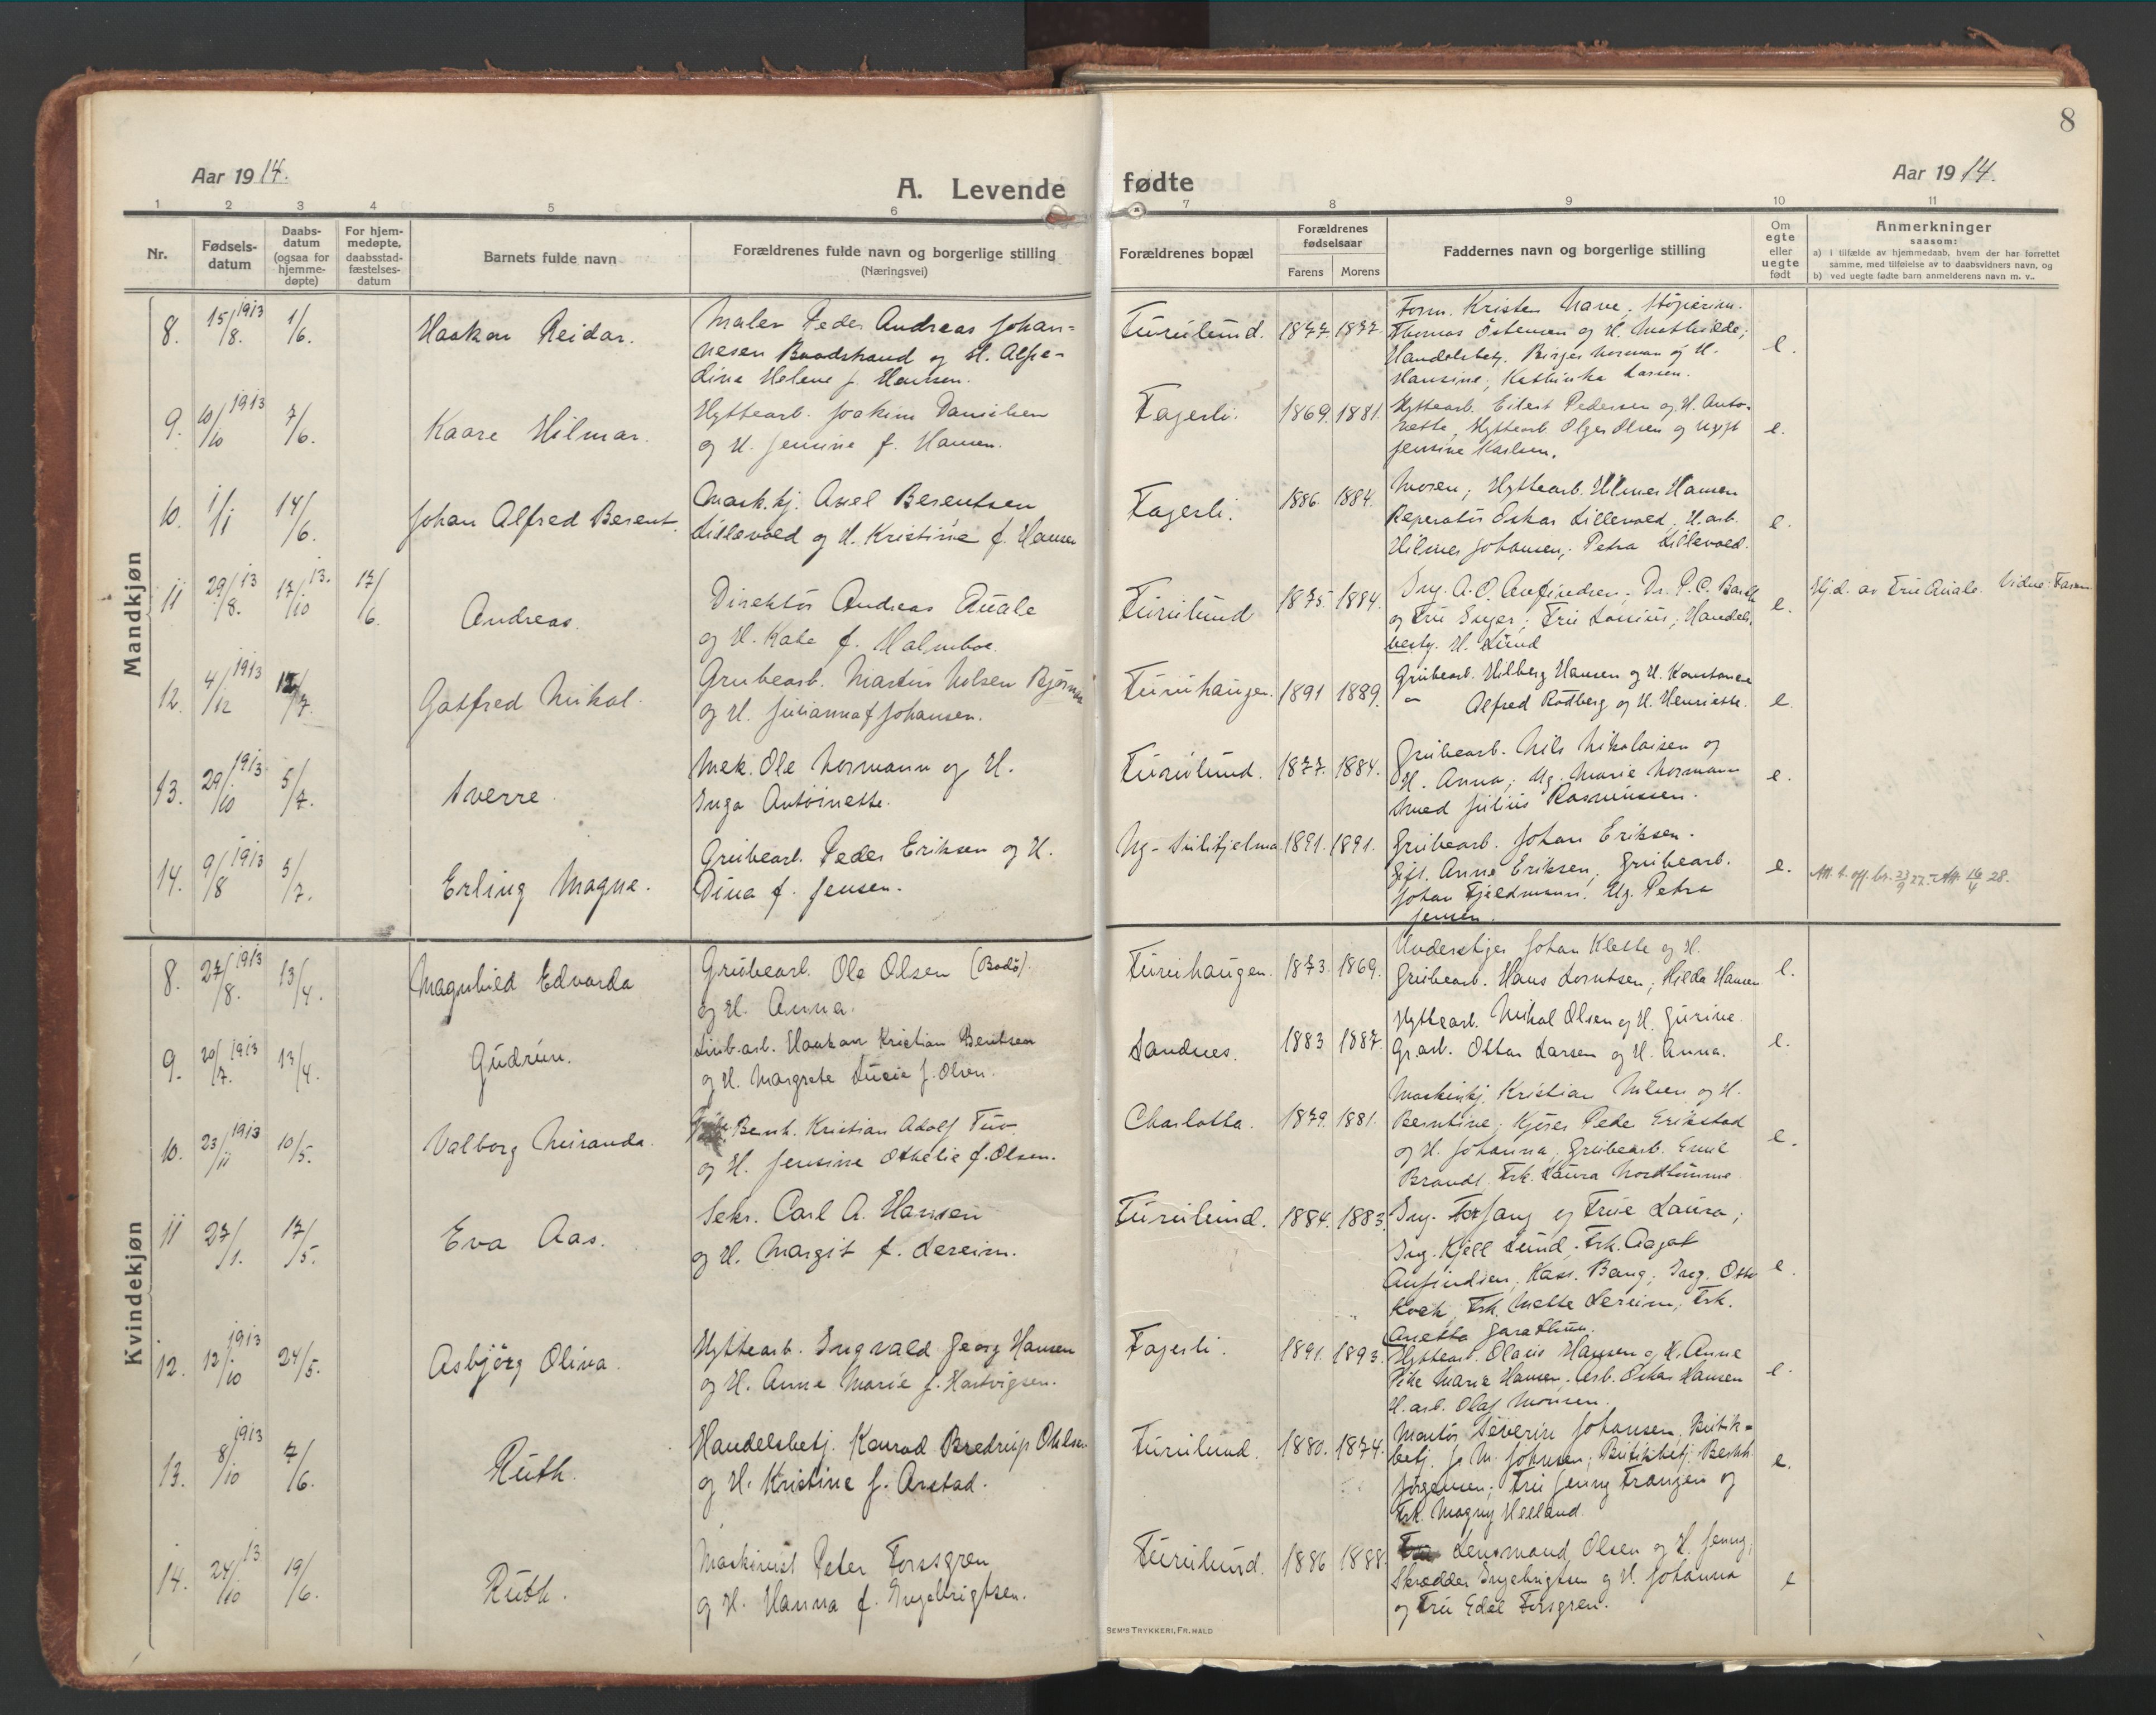 8
Aar 1914.
A. Levende fødte
Aar 1914.
1 2 3 4 5 6 7 8 9 10 11
Nr.
Fødsels-
datum
Daabs-
datum
(ogsaa for
hjemme-
døpte)
For hjem-
medøpte,
daabsstad-
fæstelses-
datum
Barnets fulde navn
Forældrenes fulde navn og borgerlige stilling
(Næringsvei)
Forældrenes bopæl
Forældrenes
fødselsaar
Farens Morens
Faddernes navn og borgerlige stilling
Om
egte
eller
uegte
født
Anmerkninger
saasom:
a) i tilfælde av hjemmedaab, hvem der har forrettet
samme, med tilføielse av to daabsvidners navn, og
b) ved uegte fødte barn anmelderens navn m. v..
Mandkjøn
8. 15/8. 1913 1/6. Haakon Reidar.
Maler Peder Andreas Johan-
nesen Baadstrand og H. Alfe-
dina Helene f. Hansen.
Furulund. 1877. 1877.
Form. Kristen Nave,
Thomas Östensen og H. Mathilde;
Handelsbetj. Birger Norman og H.
Hansine; Kathinka Larsen.
e.
9. 10/10 1913 7/6. Kaare Hilmar.
Hyttearb. Joakim Danielsen
og H. Jensine f. Hansen.
Fagerli. 1869. 1881.
Hyttearb. Eilert Pedersen og H. Anto-
nette, Hyttearb. Olger Olsen og
Jensine Karlsen.
e.
10. 1/1 14/6. Johan Alfred Berent.
Mask.kj. Axel Berentsen
Lillevold og H. Kristine f. Hansen
Fagerli. 1886. 1884.
Moren; Hyttearb. Hilmer Hansen
Reperatör Oskar Lillevold, H.arb.
Hilmer Johansen; Petra Lillevold.
e.
11 29/8. 13 17/10 13. 17/6. Andreas.
Direktör Andreas Quale
og H. Kate f. Holmboe.
Furulund 1875. 1884.
Ing. A.O. Anfindsen; Dr. P.C. Barth
og Fru Inger; Fru Lossius; Handels
besty. H. Lund
e.
Hj.d. av Fru Quale. Vidne: Faren
12. 4/12 1913 12/7. Gotfred Nikal.
Grubearb. Martin Nelsen Björnn
og H. Julianna f Johansen.
Furuhaugen. 1891 1889.
Grubearb. Hilberg Hansen og H. Konstanse
" Alfred Rödberg og H. Henriette.
e.
13. 29/10 1913 5/7. Sverre.
Mek. Ole Normann og H.
Inga Antoinette.
Furulund. 1877. 1884.
Grubearb. Nils Nikolaisen og
H. Anna; Ug. Marie Normann
med Julius Rasmussen.
e.
14. 9/8 1913 5/7. Erling Magne.
Grubearb. Peder Eriksen og H.
Dina f. Jensen.
Ny-Sulitjelma 1891. 1891.
Grubearb. Johan Eriksen.
Gift. Anna Eriksen, Grubearb.
Johan Fjeldmann. Ug. Petra
Jensen.
e.
Att. t. off. br. 23/9 27. Att 16/4 28.
Kvindekjøn
8. 27/8. 1913 13/4. Magnhild Edvarda
Grubearb. Ole Olsen (Bodö).
og H. Anna.
Furuhaugen. 1873. 1869.
Understiger Johan Klette og H.
Grubearb. Hans Lorntsen; Hilda Hansen
e.
9. 20/7. 1913 13/4. Gudrun.
Linb.arb. Haakon Kristian Bentsen
og H. Margrete Lucie f. Olsen.
Sandnes. 1883 1887.
Hyttearb. Nikal Olsen og H. Gurine.
Gr.arb. Ottar Larsen og H. Anna.
e.
10. 23/11 1913 10/5. Valborg Miranda.
Bernh. Kristian Adolf Tuv.
og H. Jensine Othelie f. Olsen.
Charlotta. 1879. 1881.
Maskinkj. Kristian Nilsen og H.
Berntine; Kjörer Peder Erikstad
og H. Johanna, Grubearb. Emil
Brandt, Frk. Laura Nordhimme
e.
11 27/1. 17/5. Eva Aas.
Sekr. Carl A. Hansen
og H. Margit f. Lereim.
Furulund. 1884. 1883.
Ing. Torfang og Frue Laura;
Ing. Kjell Lund; Frk. Aagot
Anfindsen, Kass. Bang; Ing. Otto
Koch, Frk. Mette Lereim, Frk.
Anetta
e.
12. 12/10 1913 24/5. Asbjörg Oliva.
Hyttearb. Ingvald Georg Hansen
og H. Anna Marie f. Hartvigsen.
Fagerli. 1891. 1893.
Hyttearb. Olaus Hansen og H. Anne
Pike Marie Hansen. Arb. Oskar Hansen
H.arb. Olaf Monsen.
e.
13. 8/10 1913 7/6. Ruth.
Handelsbetj. Konrad Bredrup Ohlsen
og H. Kristine f. Arstad.
Furulund. 1880. 1874.
Montör Severin Johansen, Butik-
betj. J. M. Johnsen; Butikbetj. Bernh.
Jörgensen; Fru Jenny Frangen og
Frk. Magny Helland.
e.
14. 24/10 13 19/6. Ruth.
Maskinist Peter Forssgren
og H. Hanna f. Ingebrigtsen.
Furulund. 1886 1888.
Lensmand Olsen og H. Jenny;
Skrædder Ingebrigtsen og H. Johanna
og Fru Edel Forsgren.
e
SEM'S TRYKKERI, FR. HALD